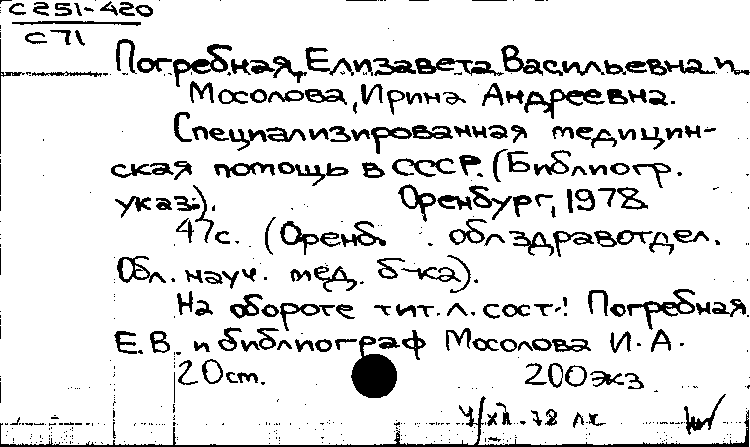 С251-420
С71
Погребная, Елизавета Васильевна и
Мосолова, Ирина Андреевна.
Специализированная медицин-
ская помощь в СССР. (Библиогр.
указ.).   Оренбург, 1978
47с. (Оренб. облздравотдел.
Обл. науч. мед. б-ка).
На обороте тит. л. сост.: Погребная
Е.В. и библиограф Мосолова И.А.
20 cm.   200 экз
У/XII-78 лк